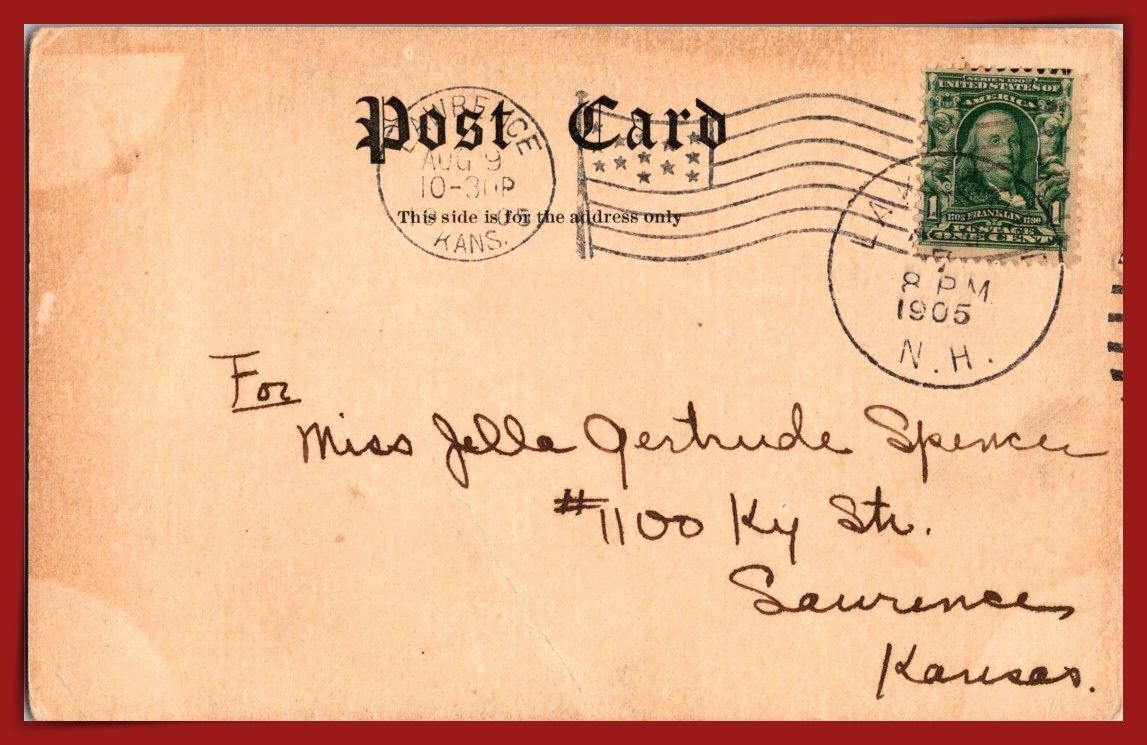 Post Card
This side is for the address only
LAWRENCE
AUG 9
10-30P
05
KANS.
SERIES 1902
UNITED STATES OF
AMERICA
1706 FRANKLIN 1790
1 1
POSTAGE
ONE CENT
8 PM
1905
N.H.
For
Miss Jella Gertrude Spencer
#1100 Ky Str.
Lawrence
Kansas.